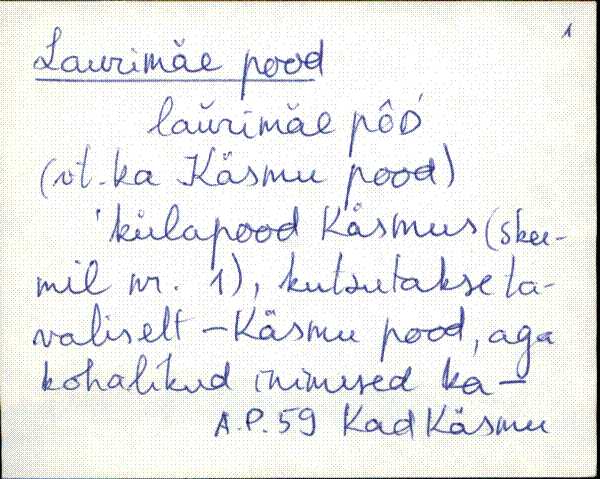 1
Laurimäe pood
laŭrimäe pôD́
(vt. ka Käsmu pood)
'külapood Käsmus (skee-
mil nr. 1), kutsutakse ta-
valiselt – Käsmu pood, aga
kohalikud inimesed ka –
A.P. 59 Kad Käsmu